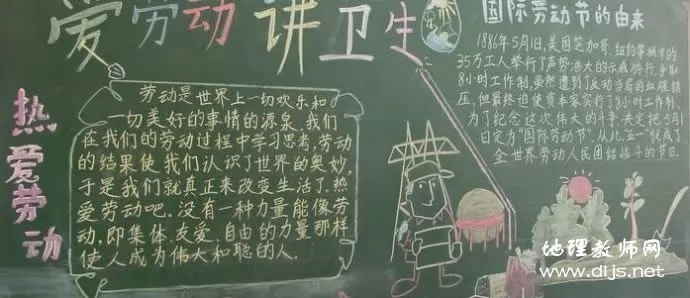 爱劳动讲卫生
热爱劳动
劳动是世界上一切欢乐和
一切美好的事情的源泉。我们
在我们的劳动过程中学习思考,劳动
的结果使我们认识了世界的奥妙,
于是我们就真正来改变生活了。热
爱劳动吧。没有一种力量能像劳
动,即集体、友爱、自由的力量那样
使人成为伟大和聪的人.
国际劳动节的由来
1886年5月1日,美国芝加哥、纽约等城市的
35万工人举行了声势浩大的示威游行,争取
8小时工作制,虽然遭到了反动当局的血腥镇
压,但最终迫使资本家实行了8小时工作制。
为了纪念这次伟大的斗争,决定把5月1
日定为“国际劳动节”,从此“五一”就成了
全世界劳动人民团结战斗的节日.
地理教师网
www.dljs.net